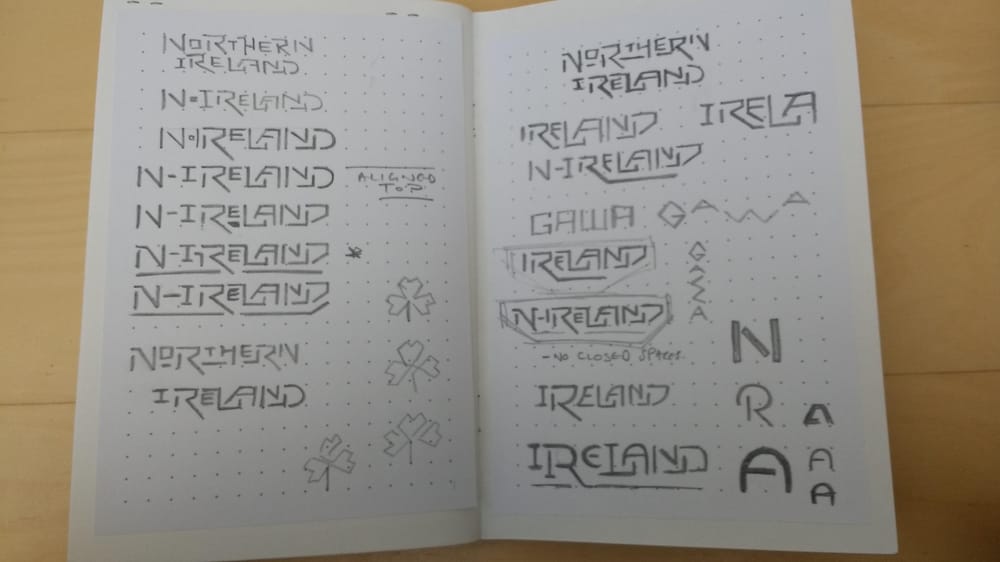 NORTHERN
IRELAND
N-IRELAND
N-IRELAND
N-IRELAND
ALIGNED
TOP
N-IRELAND
N-IRELAND
N-IRELAND
NORTHERN
IRELAND
NORTHERN
IRELAND
IRELAND
IRELA
N-IRELAND
GAWA
GAWA
IRELAND
GAWA
N-IRELAND
-NO CLOSED SPACES
N
IRELAND
R
A
IRELAND
A
A
A